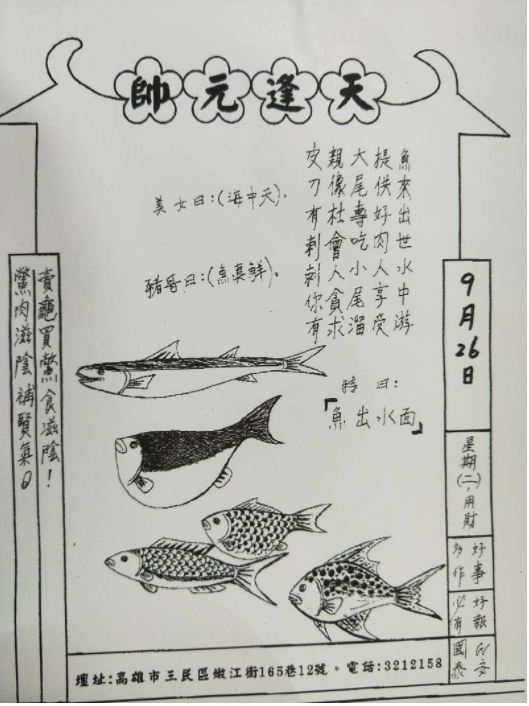 天逢元帥
魚來出世水中游
提供好肉人享受
大尾專吃小尾溜
親像杜會人貪求
皮刀有刺剝你有
美女曰:(海中天).
豬哥曰:(魚真鮮).
特曰:
「魚出水面」
9月26日
星期(二),用財
好事多作
好報必有
民安國泰
賣龜買鱉食滋陰!
鱉肉滋陰補賢氣
壇址:高雄市三民區嫩江街165巷12號。電話:3212158